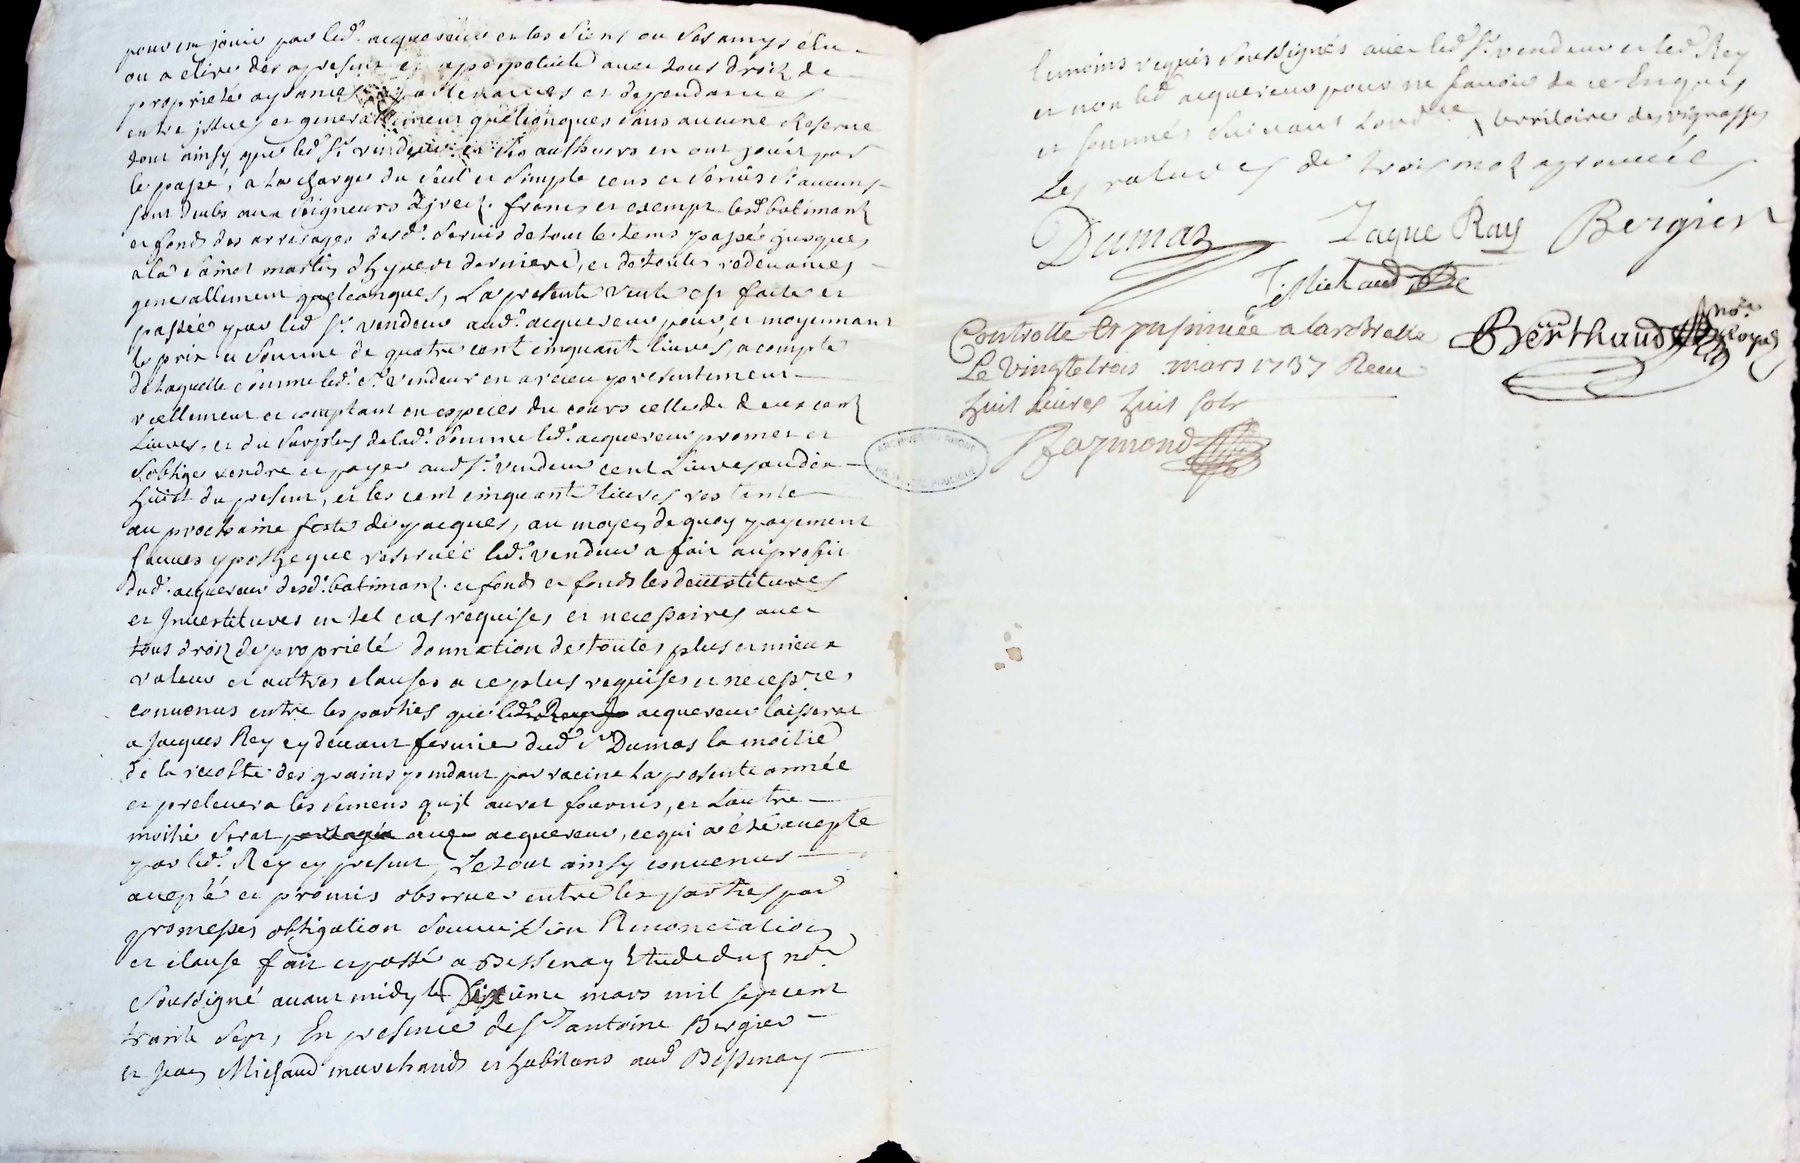 pour en jouir par led. acquereur et les siens ou ses amys élu
ou a elire des apresent et a perpetuité avec tous droit de
proprieté aysances appartenances et dependances
entre issues et generallement quelconques sans aucune Reserve
tout ainsy que led. Sr. vendeur et ses autheurs en ont jouit par
le passé, a la charge du seul et simple cens et servis si aucuns
sont dubs aux seigneurs directz francs et exempt lesd. batimant
et fonds des arrerages desd. servis de tout le tems passé jusques
a la saint martin d'hyvert derniere, et de toutes redevances
generallement quelconques, La presente vente est faite et
passée par led. Sr. vendeur aud. acquereur pour et moyennant
le prix et somme de quatre cent cinquante livres, a compte
de laquelle somme led. Sr. vendeur en a receu presentement
reellement et comptant en especes du cours celle de deux cent
livres, et du surplus de lad. somme led. acquereur promet et
s'oblige rendre et payer aud. Sr. vendeur cent livres audix
huit du present, et les cent cinquante livres restente
au prochaine feste de pacques, au moyen de quoy payement
sauves ypotheque reservée led. vendeur a fait au profit
dud. acquereur desd. batimant. et fonds et fonds les deuestitures
et Jnvestitures en tel cas requises et necessaires avec
tous droit de proprieté donnation de toutes plus et mieux
valeur et autres clauses a ce plus requises et necessres,
convenus entre les parties que led. acquereur laissera
a Jacques Rey cy devant fermier dud. Sr. Dumas la moitié
de la recolte des grains pendant par racine la presente année
et prelevera les semens qu'jl aurat fournis, et l'autre
moitié serat partagée avec acquereur, ce qui a été accepté
par led. Rey cy present, Le tout ainsy convenus
accepté et promis observer entre les parties par
promesses obligation soumission Renonciation
et clause fait et passé a Bessenay Etude du no.re
soussigné avant midy le Dixiéme mars mil sept cent
trante sept, En presence de Sr. antoine Bergier
et Jean Michaud marchands et habitans aud. Bessenay
temoins requis soussignés avec led. Sr. vendeur et led. Rey
et non led. acquereur pour ne scavoir de ce Enquis
et sommés suivant l'ord.ce territoire des vignasses
Les ratures de trois mot aprouvée
Dumas Jaque Ray Bergier
J Michaud
Controllé et jnsinuée a larbresle Berthaud no.re Royal
Le vingt et trois mars 1737 Receu
huit livres huit sols
Raymond
ARCHIVES DU RHONE